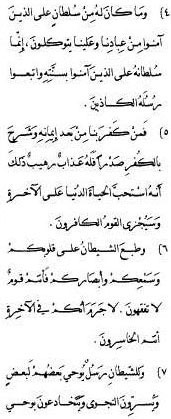 ٤) وما كان له من سلطان على الذين
آمنوا من عبادنا وعلينا يتوكلون، إنما
سلطانه على الذين آمنوا بسننه واتبعوا
رسله الكاذبين.
٥) فمن كفر بنا من بعد إيمانه وشرح
بالكفر صدرا فله عذاب رهيب ذلك
أنه استحب الحياة الدنيا على الآخرة
وسيجزى القوم الكافرون.
٦) وطبع الشيطان على قلوبكم
وسمعكم وأبصاركم فأنتم قوم
لا تفقهون. لا جرم أنكم في الآخرة
أنتم الخاسرون.
٧) وللشيطان رسل يوحي بعضهم لبعض
ويسرون النجوى ويتخادعون بوحي